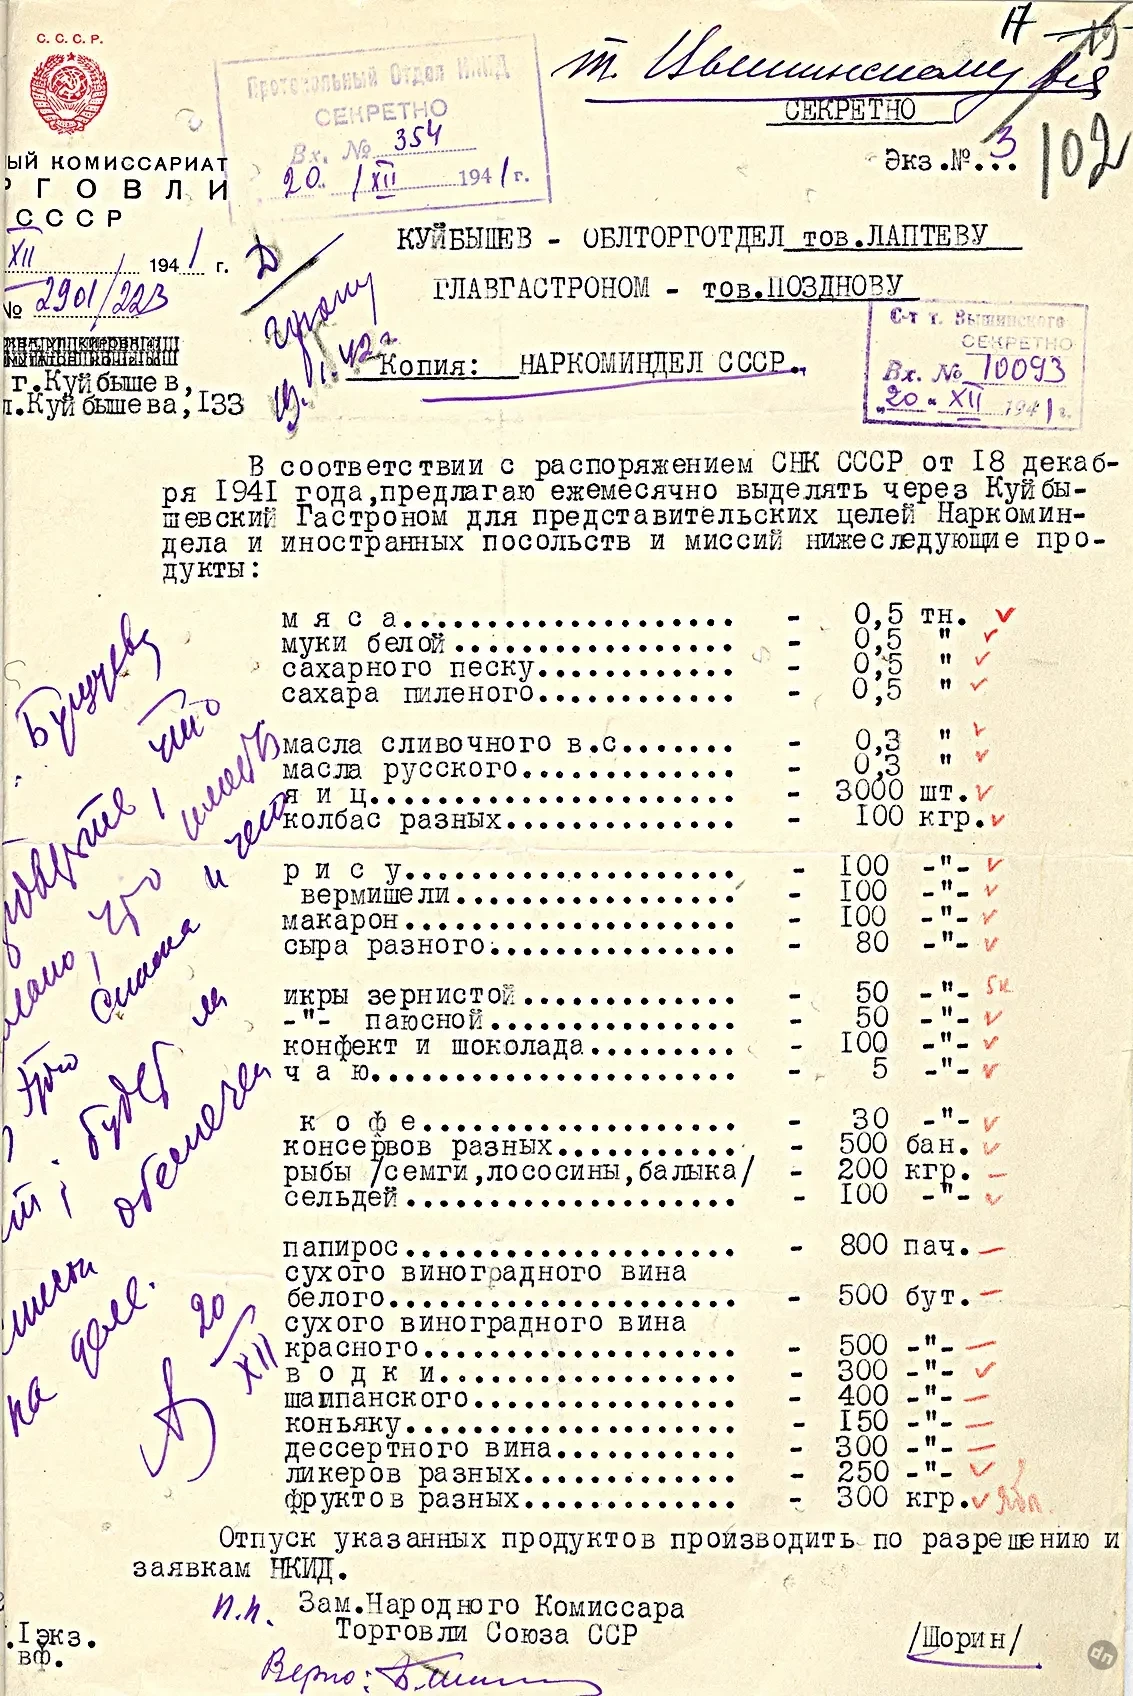 С. С. С. Р.
ЫЙ КОМИССАРИАТ
РГОВЛИ
СССР
XII 1941 г.
№ 2901/223
г.Куйбышев,
л.Куйбышева,133
Протокольный Отдел НКИД
СЕКРЕТНО
Вх. № 354
20 / XII 1941 г.
17
т. Вышинскому
СЕКРЕТНО
Экз.№ 3...
102
КУЙБЫШЕВ - ОБЛТОРГОТДЕЛ тов.ЛАПТЕВУ
ГЛАВГАСТРОНОМ - тов.ПОЗДНОВУ
Копия: НАРКОМИНДЕЛ СССР.,
С-т т. Вышинского
СЕКРЕТНО
Вх. № 10093
"20" XII 1941 г.
19.I.42г
В соответствии с распоряжением СНК СССР от 18 декаб-
ря 1941 года,предлагаю ежемесячно выделять через Куйбы-
шевский Гастроном для представительских целей Наркомин-
дела и иностранных посольств и миссий нижеследующие про-
дукты:
м я с а..................... - 0,5 тн.
муки белой.................. - 0,5 "
сахарного песку............. - 0,5 "
сахара пиленого............. - 0,5 "
масла сливочного в.с........ - 0,3 "
масла русского.............. - 0,3 "
я и ц....................... - 3000 шт.
колбас разных............... - 100 кгр.
р и с у..................... - 100 -"-
вермишели................... - 100 -"-
макарон..................... - 100 -"-
сыра разного................ - 80 -"-
икры зернистой.............. - 50 -"- 5к
-"- паюсной................. - 50 -"-
конфект и шоколада.......... - 100 -"-
ч а ю....................... - 5 -"-
к о ф е..................... - 30 -"-
консервов разных............ - 500 бан.
рыбы /семги,лососины,балыка/ - 200 кгр.
сельдей..................... - 100 -"-
папирос..................... - 800 пач.
сухого виноградного вина
белого...................... - 500 бут.
сухого виноградного вина
красного.................... - 500 -"-
в о д к и................... - 300 -"-
шампанского................. - 400 -"-
коньяку..................... - 150 -"-
дессертного вина............ - 300 -"-
ликеров разных.............. - 250 -"-
фруктов разных.............. - 300 кгр. Ябл.
что
иметь
Это
и чего
будет ли
обеспечен
на деле.
20/XII
Отпуск указанных продуктов производить по разрешению и
заявкам НКИД.
п.п. Зам.Народного Комиссара
Торговли Союза ССР /Шорин/
.1экз.
вф.
Верно:
dn